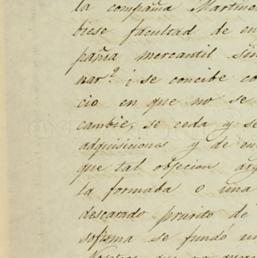 la compañia Martinez
biese facultad de en
pañia mercantil sin
nar.? i se concibe co
cio en que no se
cambie, se ceda y se
adquisiciones y de en
que tal objecion arg
la formaba o una
descarado prurito de
sofisma se fundó un